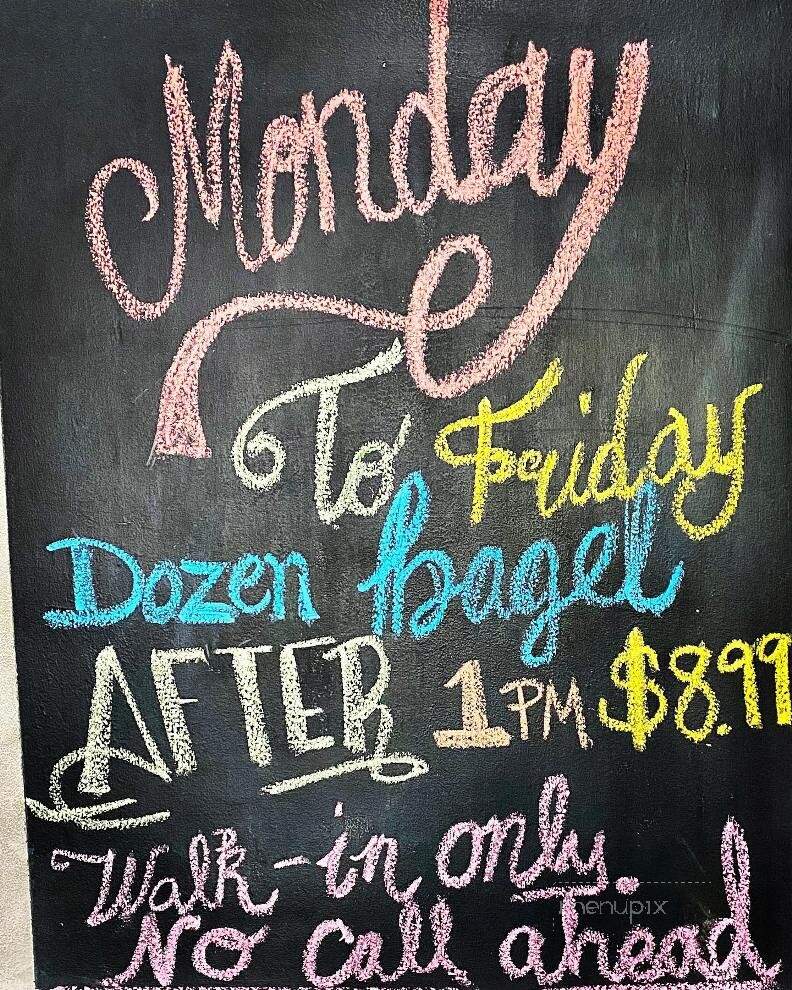 Monday
To Friday
Dozen bagel
AFTER 1 PM $8.99
Walk-in only.
menupix
No call ahead